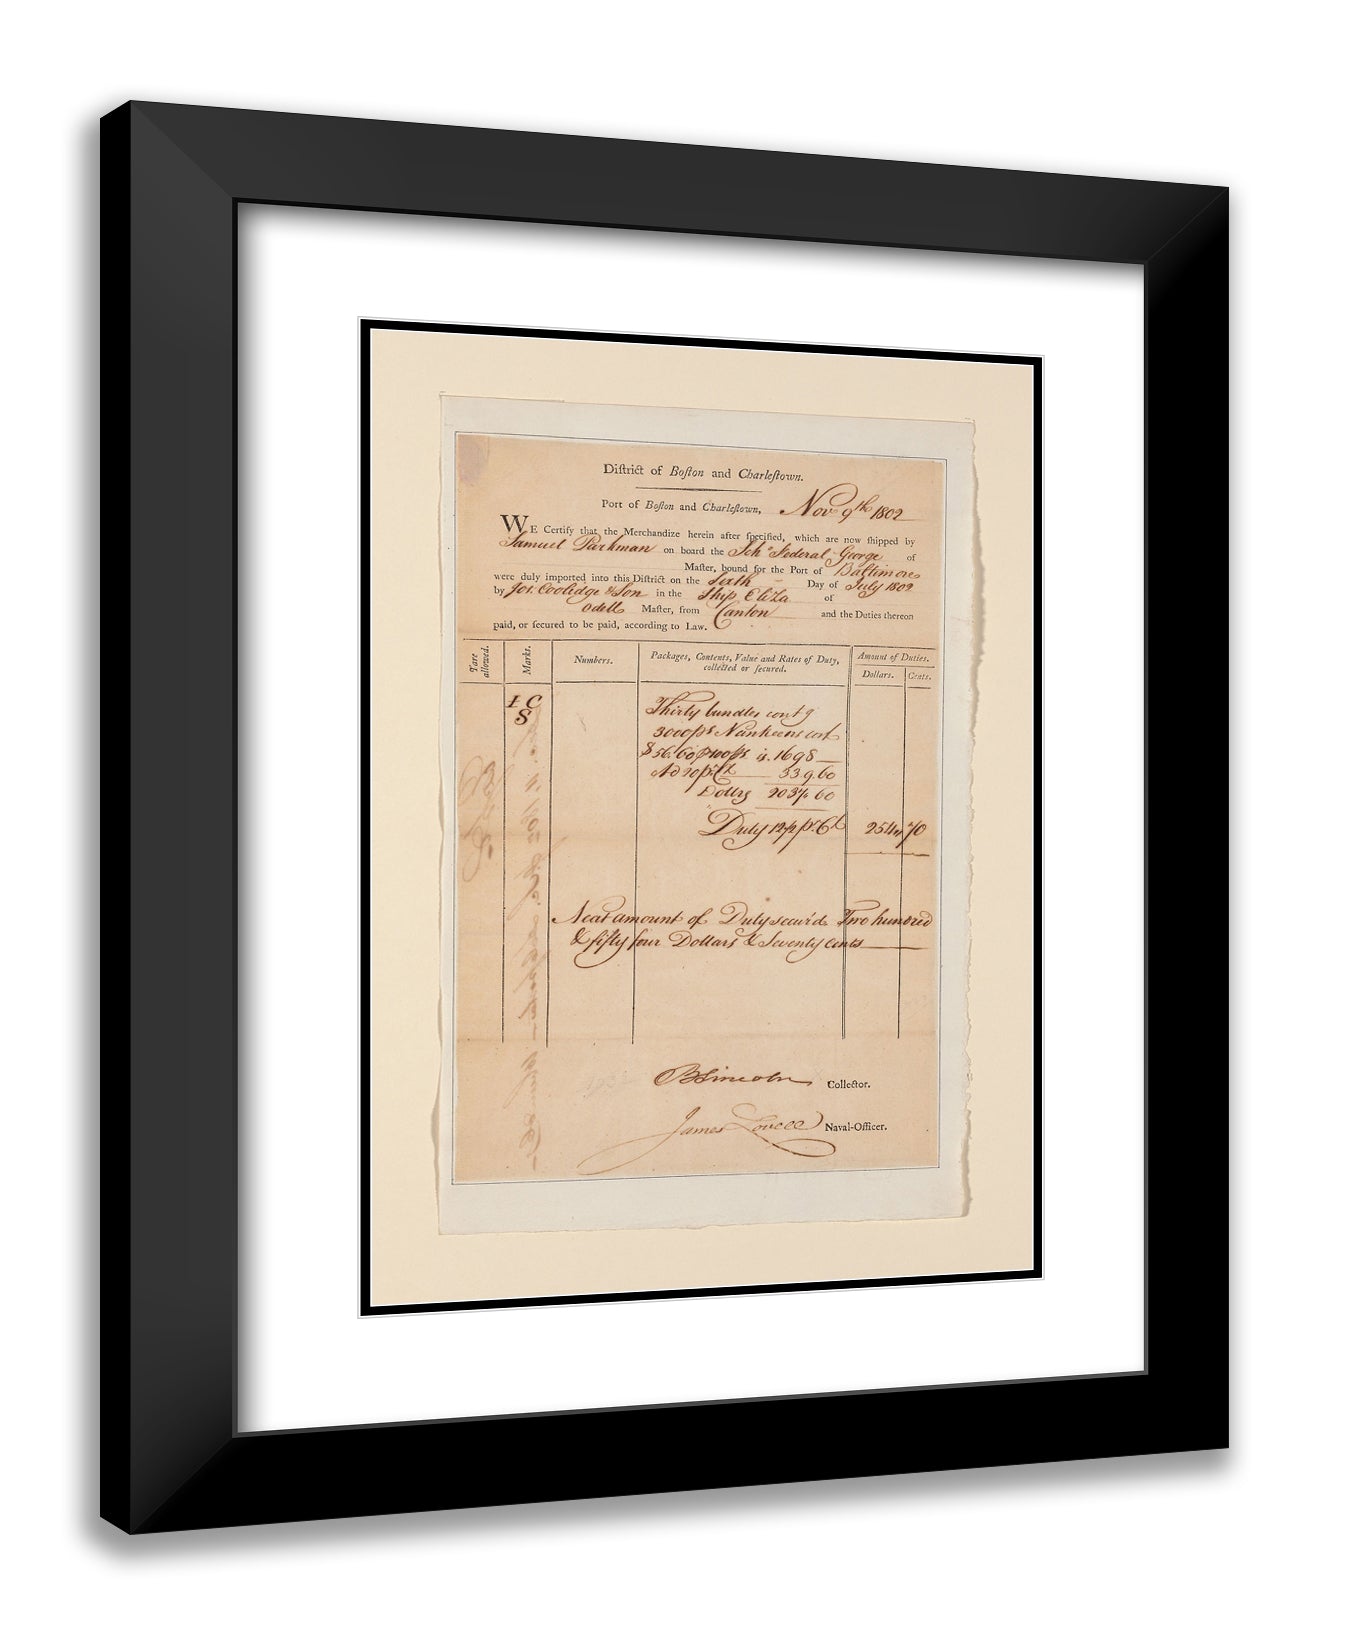 Diſtrict of Boſton and Charleſtown.
Port of Boſton and Charleſtown, Nov 9th 1802
WE Certify that the Merchandize herein after ſpecified, which are now ſhipped by
Samuel Parkman on board the Schr Federal George of
Maſter, bound for the Port of Baltimore
were duly imported into this Diſtrict on the Sixth Day of July 1802
by Jos. Coolidge & Son in the Ship Eliza of
Odell Maſter, from Canton and the Duties thereon
paid, or ſecured to be paid, according to Law.
Tare allowed. Marks. Numbers. Packages, Contents, Value and Rates of Duty, collected or ſecured. Amount of Duties.
Dollars. Cents.
I C Thirty bundles contg
S 3000 ps Nankeens cost
$56.60 P 100 ps is. 1698
Ad 20 pr Ct 339.60
Dollrs 2037.60
Duty 12½ pr Ct 254 70
Neat amount of Duty secur'd Two hundred
& fifty four Dollars & Seventy cents
B Lincoln Collector.
James Lovell Naval-Officer.